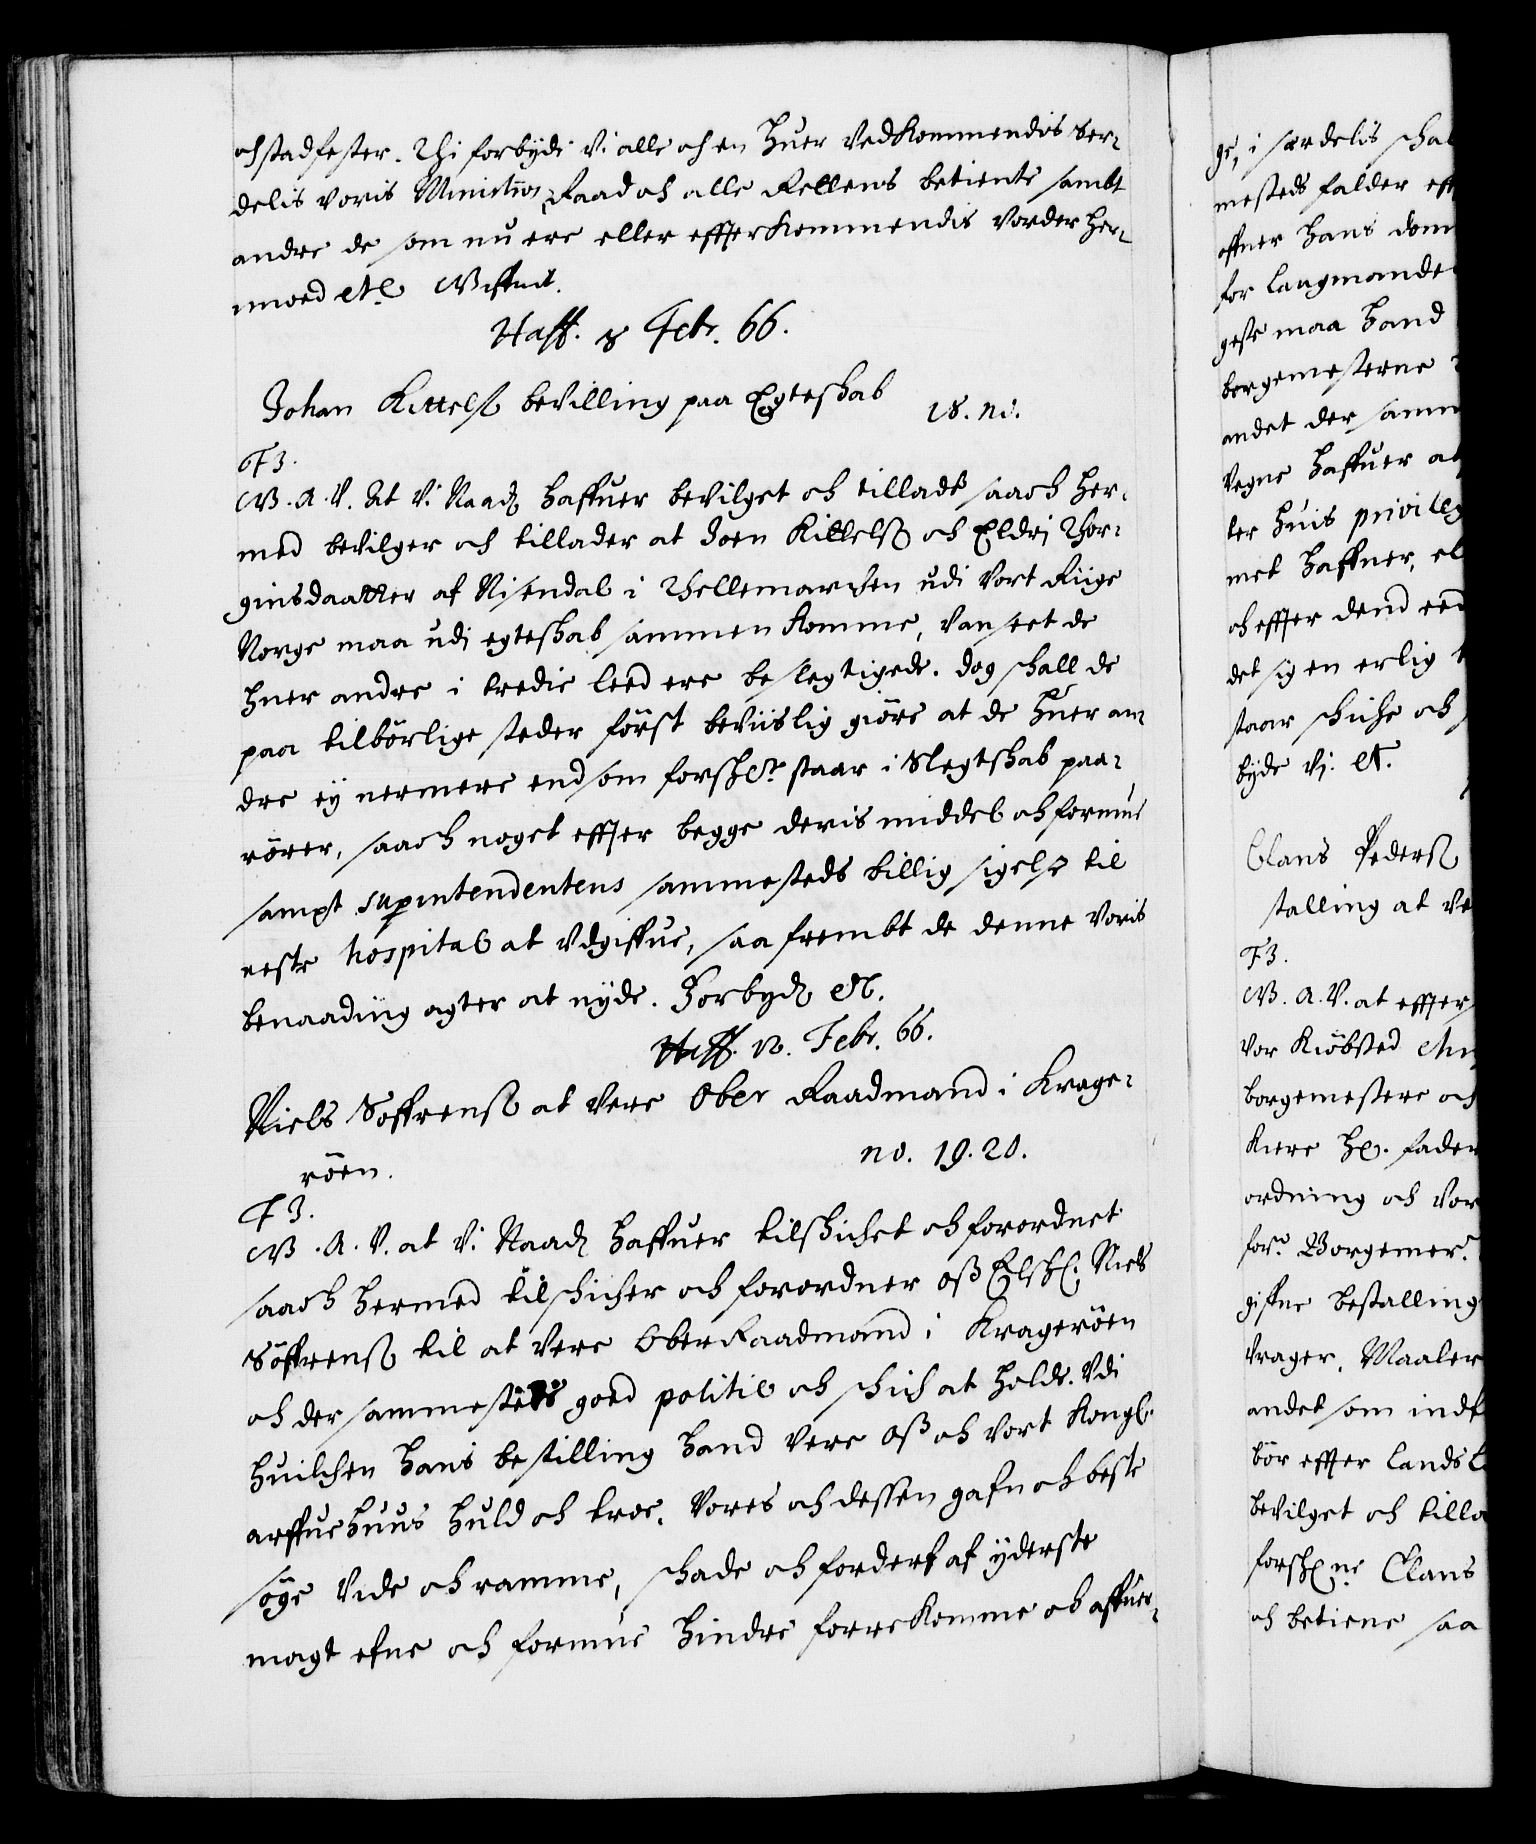 och stadfester. Thi forbyde Vi alle och en huer Vedkommendis ser-
delis voris Ministros, Raad och alle Rettens betiente sambt
andre de som nu ere eller effterkommendis vorder her-
imod etc Giffuit.
Haff. 8 Febr. 66.
Johan Kittelß bevilling paa Egteskab 18. no.
F3.
G. A. V. At Vi Naad haffuer bevilget och tilladt saa och her-
med bevilger och tillader at Joen Kittelß och Eldri Thor-
ginsdaatter af Nisendal i Thellemarchen udi vort Riige
Norge maa udi egteskab sammen komme, Vanseet de
huer andre i tredie leed ere beslegtigede. dog schall de
paa tilbörlige steder först beviislig giöre at de huer an-
dre ey nermere end som forschr.e staar i Slegtskab paa-
rörer, saa och noget effter begge deris middel och formue
sampt superintendentens sammesteds billig sigelse til
neste hospital at Vdgiffue, saa frembt de denne voris
benaading agter at nyde. Forbyd etc.
Haff. 12. Febr. 66.
Niels Söffrenß at vere Ober Raadmand i Krage-
röen. no. 19. 20.
F3.
G. A. V. at Vi Naad haffuer tilskichet och forordnet
saa och hermed tilschicher och forordner oß Elskl. Niels
Söffrenß til at vere Ober Raadmand i Krageröen
och der sammesteds goed politie och schich at holde. Vdi
huilchen hans bestilling hand vere oß och vort Kongl.
arffue huus huld och troe, Vores och dessen gafn och beste
söge Vide och ramme, schade och forderf af yderste
magt efne och formue hindre forrekomme och affuer-
ge, i særdelis schal
mesteds falder eff
offuer hans dom
for Laugmande
geste maa hand
borgemesterne
andet der samm
Vegne haffuer at
ter huis privileg
met haffuer, el
och effter dend eed
det sig en erlig
staar schiche och
byde Vi. etc.
Claus Pederß
stalling at ve
F3.
G. A. V. at effter
vor Kiöbsted Chr
borgemestere och
Kiere hr. fader
ordning och vor
for.e Borgemer.e
gifne bestalling
Vrager, Maaler
andet som indf
bör effter Lands
bevilget och tilla
forschr.ne Claus
och betiene saa